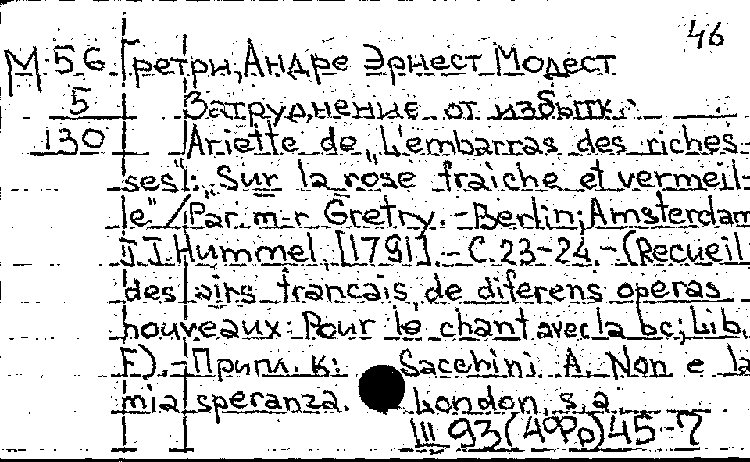 46
М 56 Гретри, Андре Эрнест Модест
5 Затруднение от избытк.
130 Ariette de „L'embarras des riches-
ses": „Sur la rose fraiche et vermeil-
le" / Par m-r Gretry. - Berlin; Amsterdam
J. J. Hummel, [1791]. - С. 23-24. - (Recueil
des airs francais de diferens operas
nouveaux: Pour le chant avec la bc; Lib.
F). - Припл. к: Sacchini A. Non e la
mia speranza. London, s.a.
III 93(40Рр)45-7